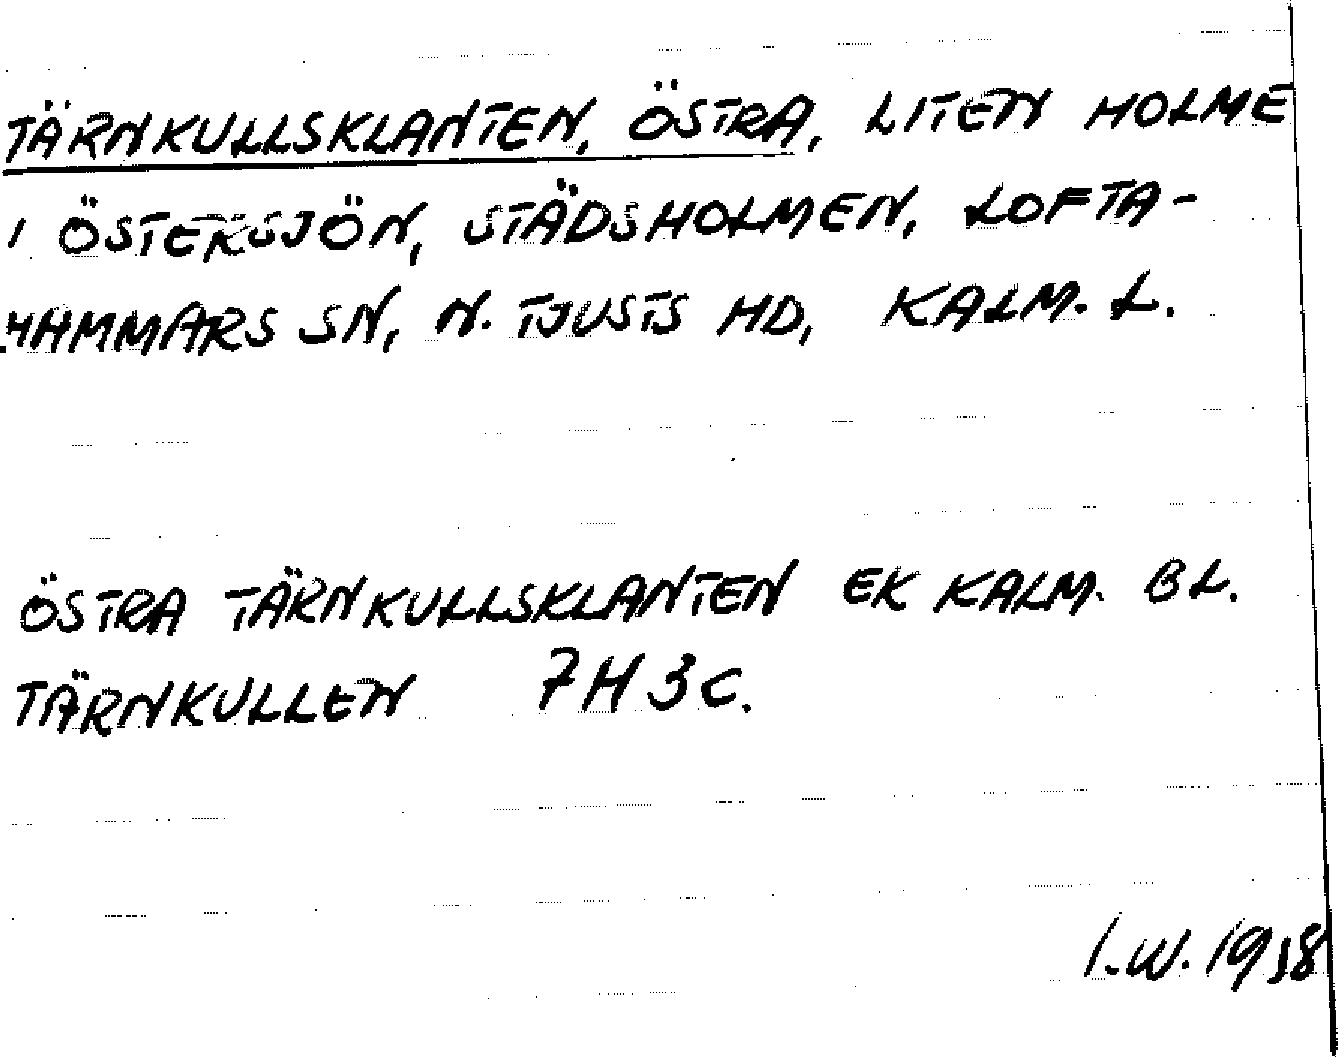 TÄRNKULLSKLANTEN, ÖSTRA, LITEN HOLME
I ÖSTERSJÖN, STÄDSHOLMEN, LOFTA-
HAMMARS SN, N. TJUSTS HD, KALM. L.
ÖSTRA TÄRNKULLSKLANTEN EK KALM. BL.
TÄRNKULLEN 7H 3C.
I.W.